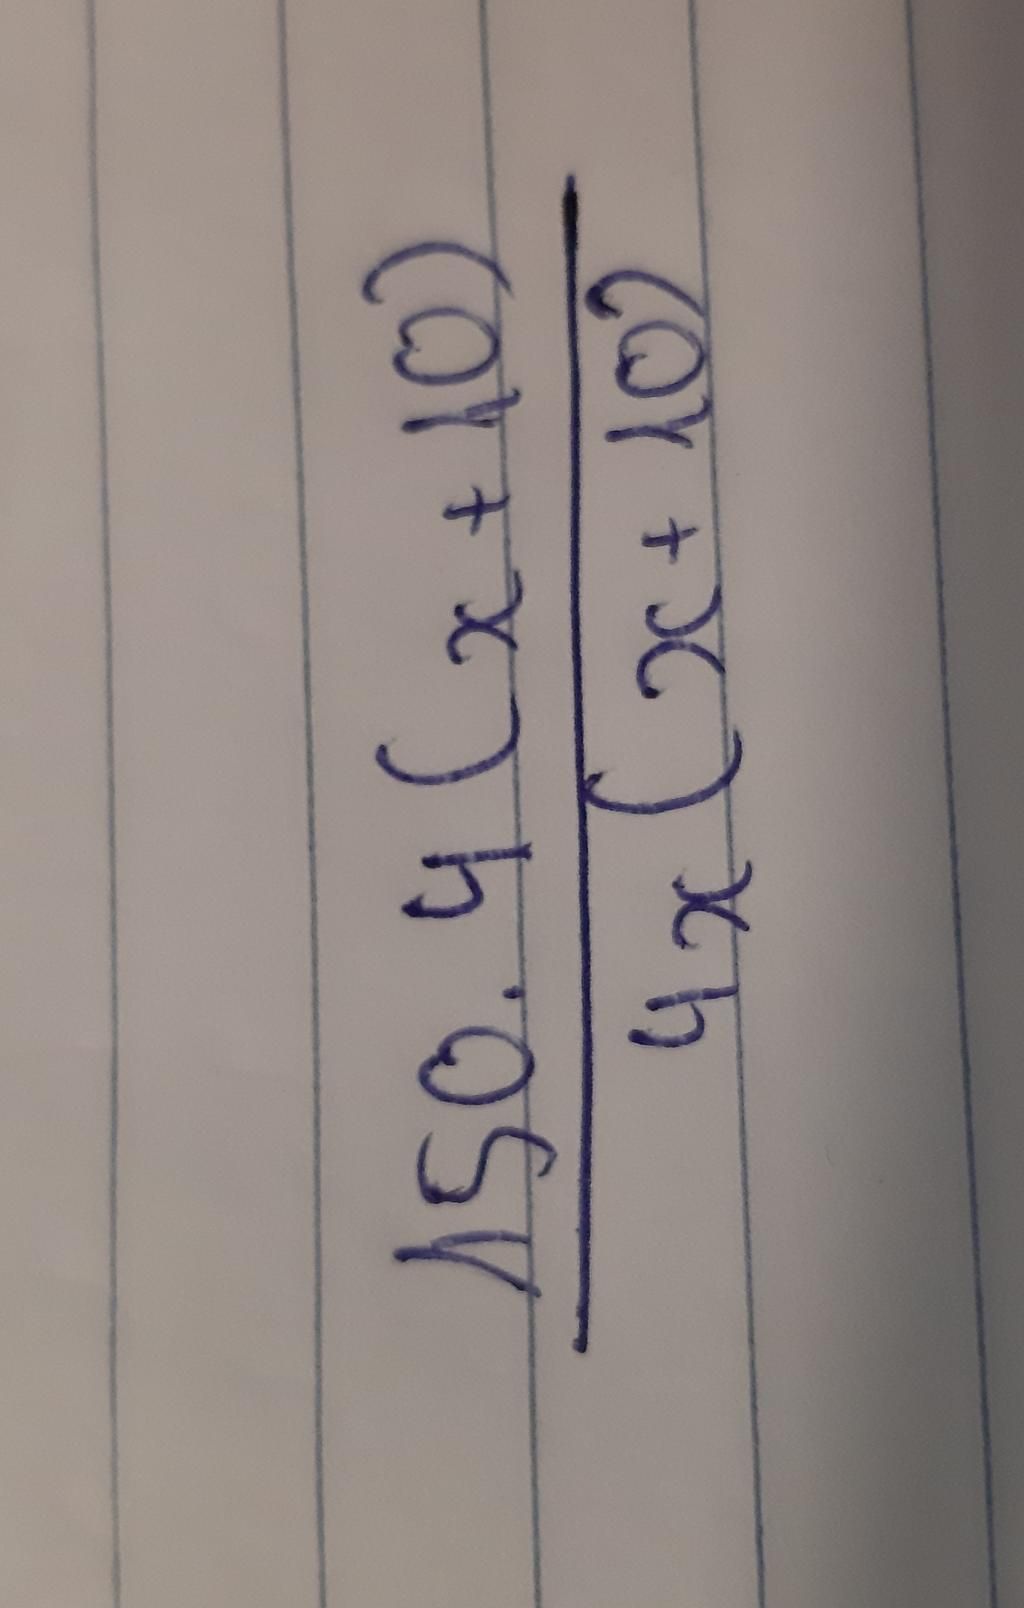 150. 4 (x + 10)
4x (x + 10)